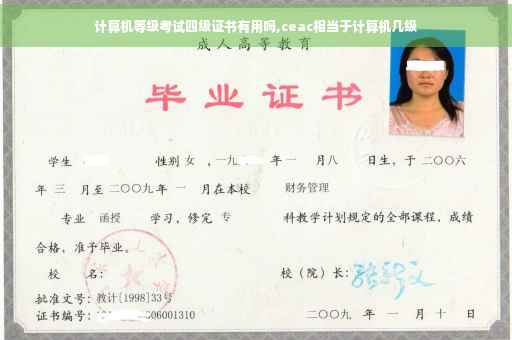 计算机等级考试四级证书有用吗,ceac相当于计算机几级
成人高等教育
毕业证书
学生 性别 女 ,一九 年 一 月八 日生,于 二〇〇六
年 三 月至 二〇〇九年 一 月在本校 财务管理
专业 函授 学习,修完 专 科教学计划规定的全部课程,成绩
合格,准予毕业。
校 名: 校(院)长:
批准文号:教计[1998]33号
证书编号: 06001310 二〇〇九 年 一 月 十 日